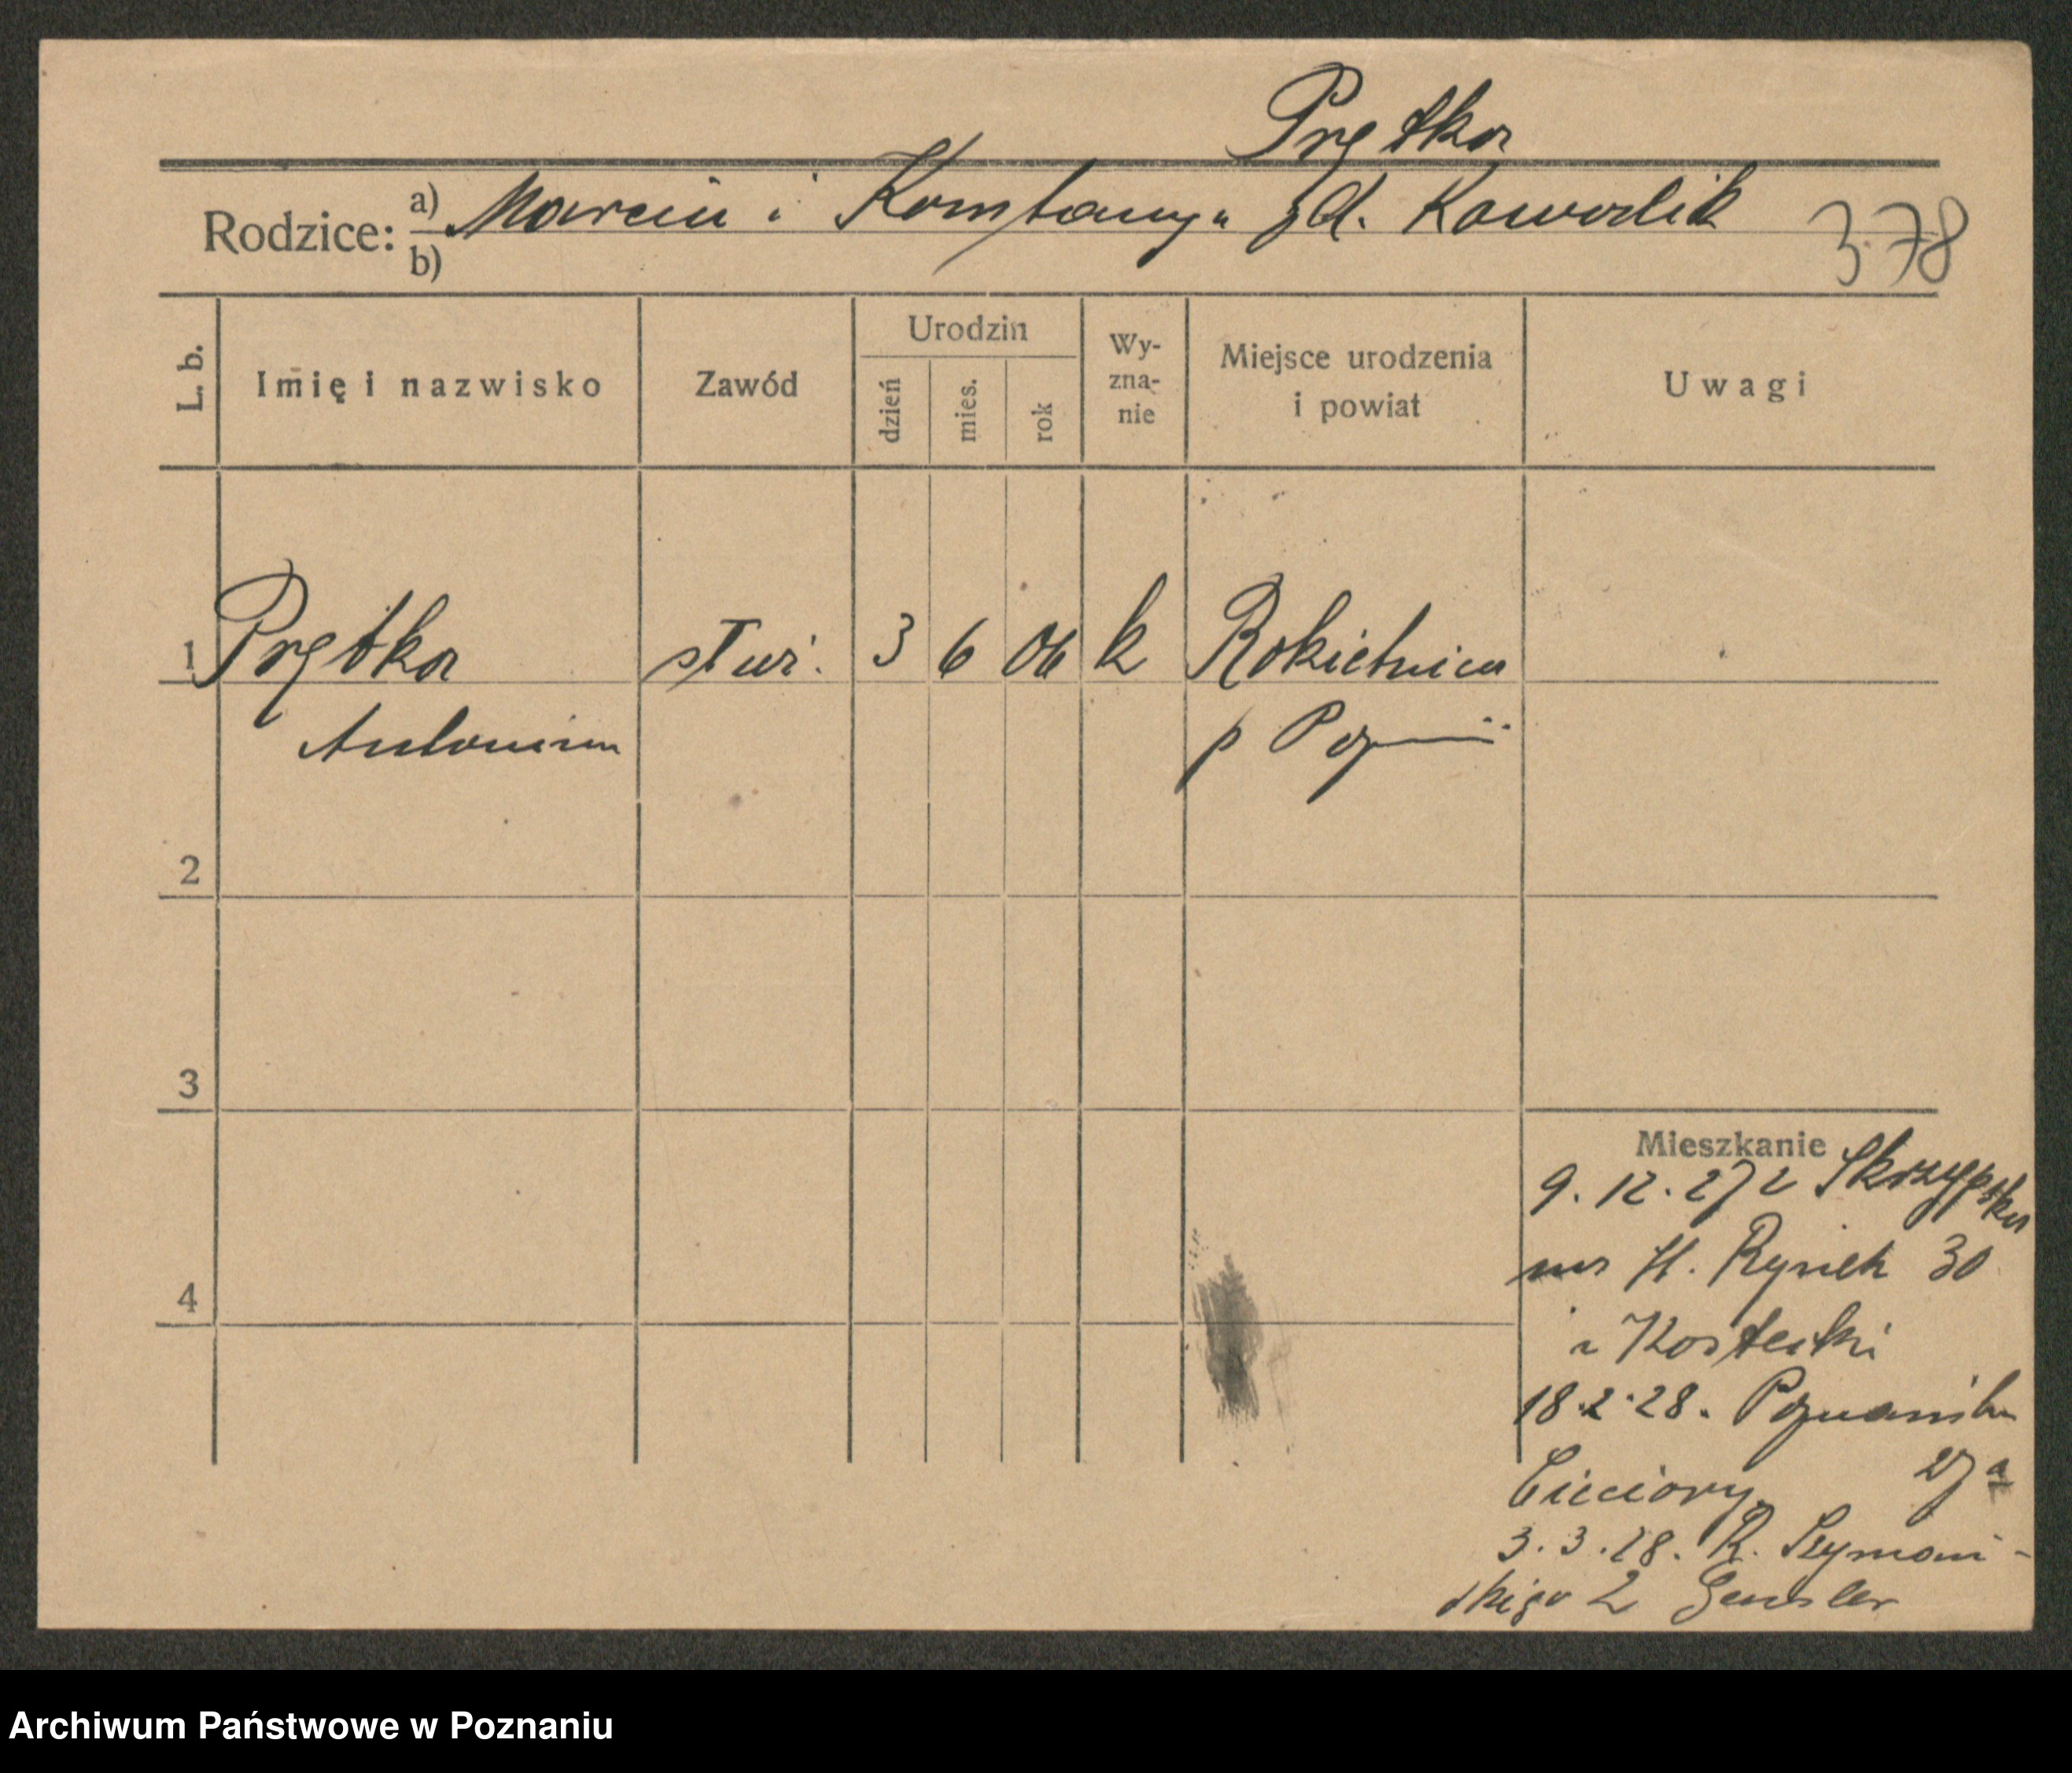 Prętka
Rodzice: a) Marcin i Konstancya zd. Kowalik 378
b)
L. b. Imię i nazwisko Zawód Urodzin dzień mies. rok Wy-zna-nie Miejsce urodzenia i powiat Uwagi
1 Prętka służ. 3 6 06 k Rokietnica
Antonina p Pozn
2
3
4
Mieszkanie
9. 12. 27 z Skrzypska
St. Rynek 30
Kostecki
18.2.28. Poznańska
Cieciory 27a
3.3.28. R. Szymań-
skiego 2 Gensler
Archiwum Państwowe w Poznaniu